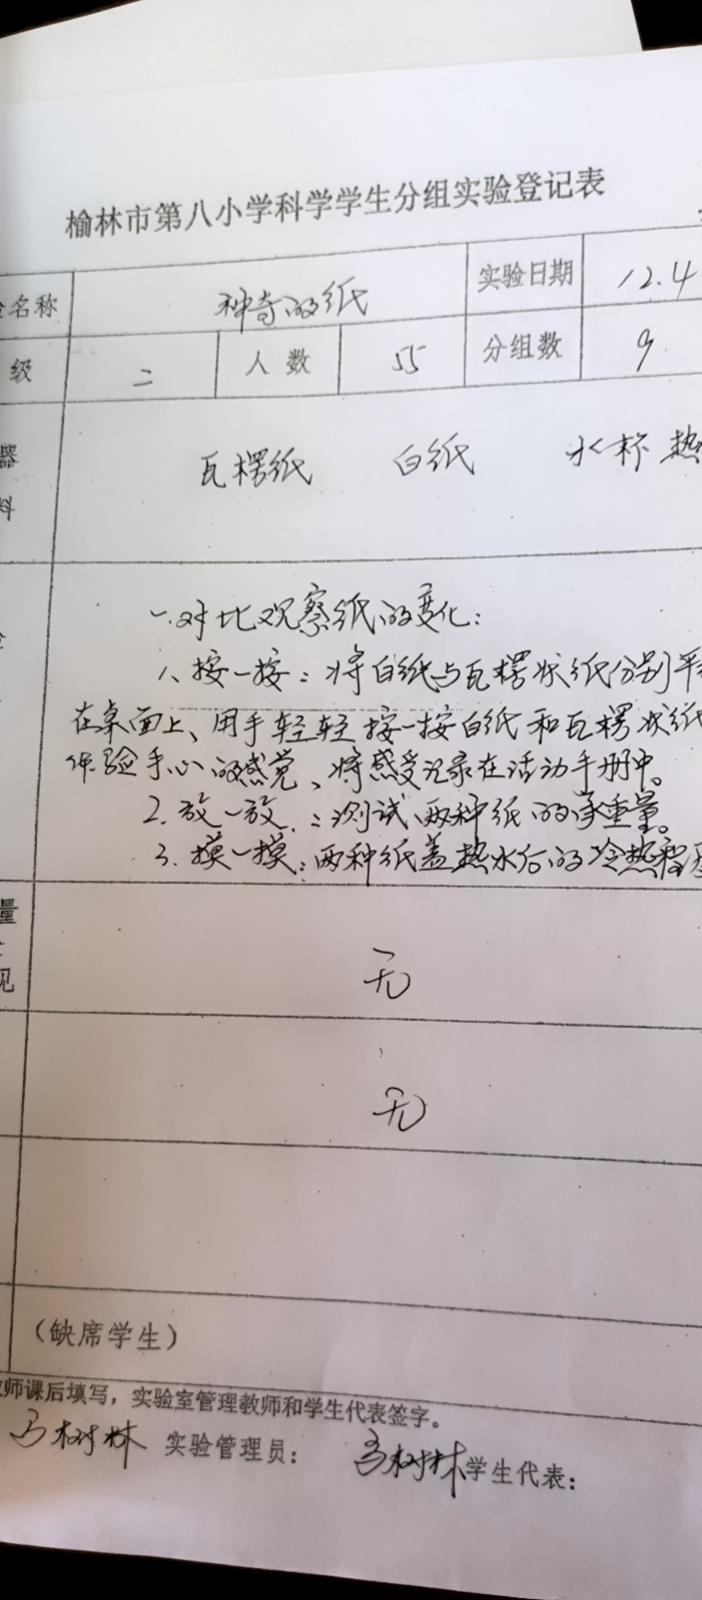 榆林市第八小学科学学生分组实验登记表
名称 神奇的纸 实验日期 12.4
级 二 人数 55 分组数 9
器 瓦楞纸 白纸 水杯 热
料
一.对比观察纸的变化:
1、按一按:将白纸与瓦楞状纸分别平
在桌面上、用手轻轻按一按白纸和瓦楞状纸
体验手心的感觉、将感受记录在活动手册中。
2.放一放.:测试两种纸的承重量。
3.摸一摸:两种纸盖热水后的冷热程
量
见 无
无
(缺席学生)
师课后填写，实验室管理教师和学生代表签字。
马树林 实验管理员: 马树林 学生代表: